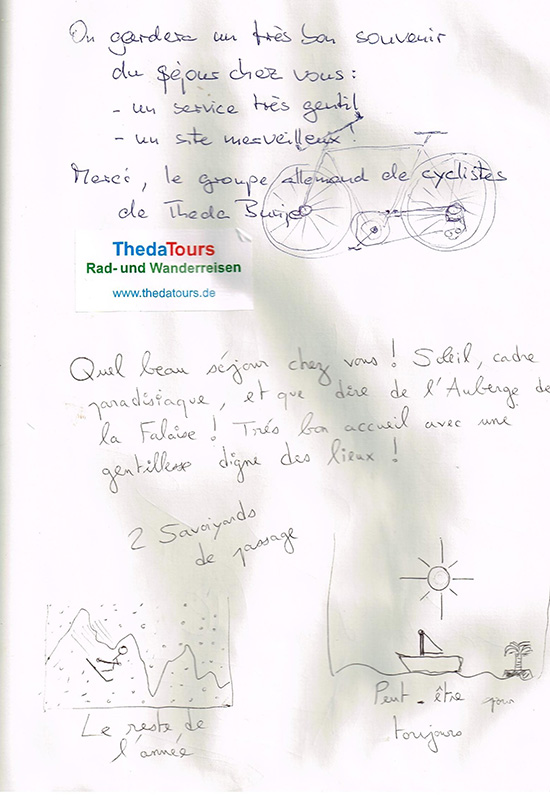 On gardera un très bon souvenir
du séjour chez vous :
- un service très gentil
- un site merveilleux !
Merci, le groupe allemand de cyclistes
de Theda
ThedaTours
Rad- und Wanderreisen
www.thedatours.de
Quel beau séjour chez vous ! Soleil, cadre
paradisiaque, et que dire de l'Auberge de
la Falaise ! Très bon accueil avec une
gentillesse digne des lieux !
2 Savoyards
de passage
Le reste de
l'année
Peut-être pour
toujours